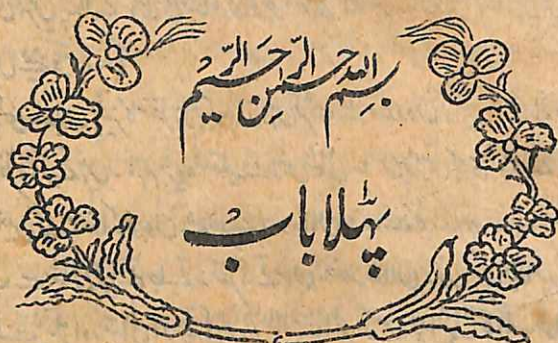 بِسْمِ اللّٰهِ الرَّحْمٰنِ الرَّحِیْمِ
پہلا باب